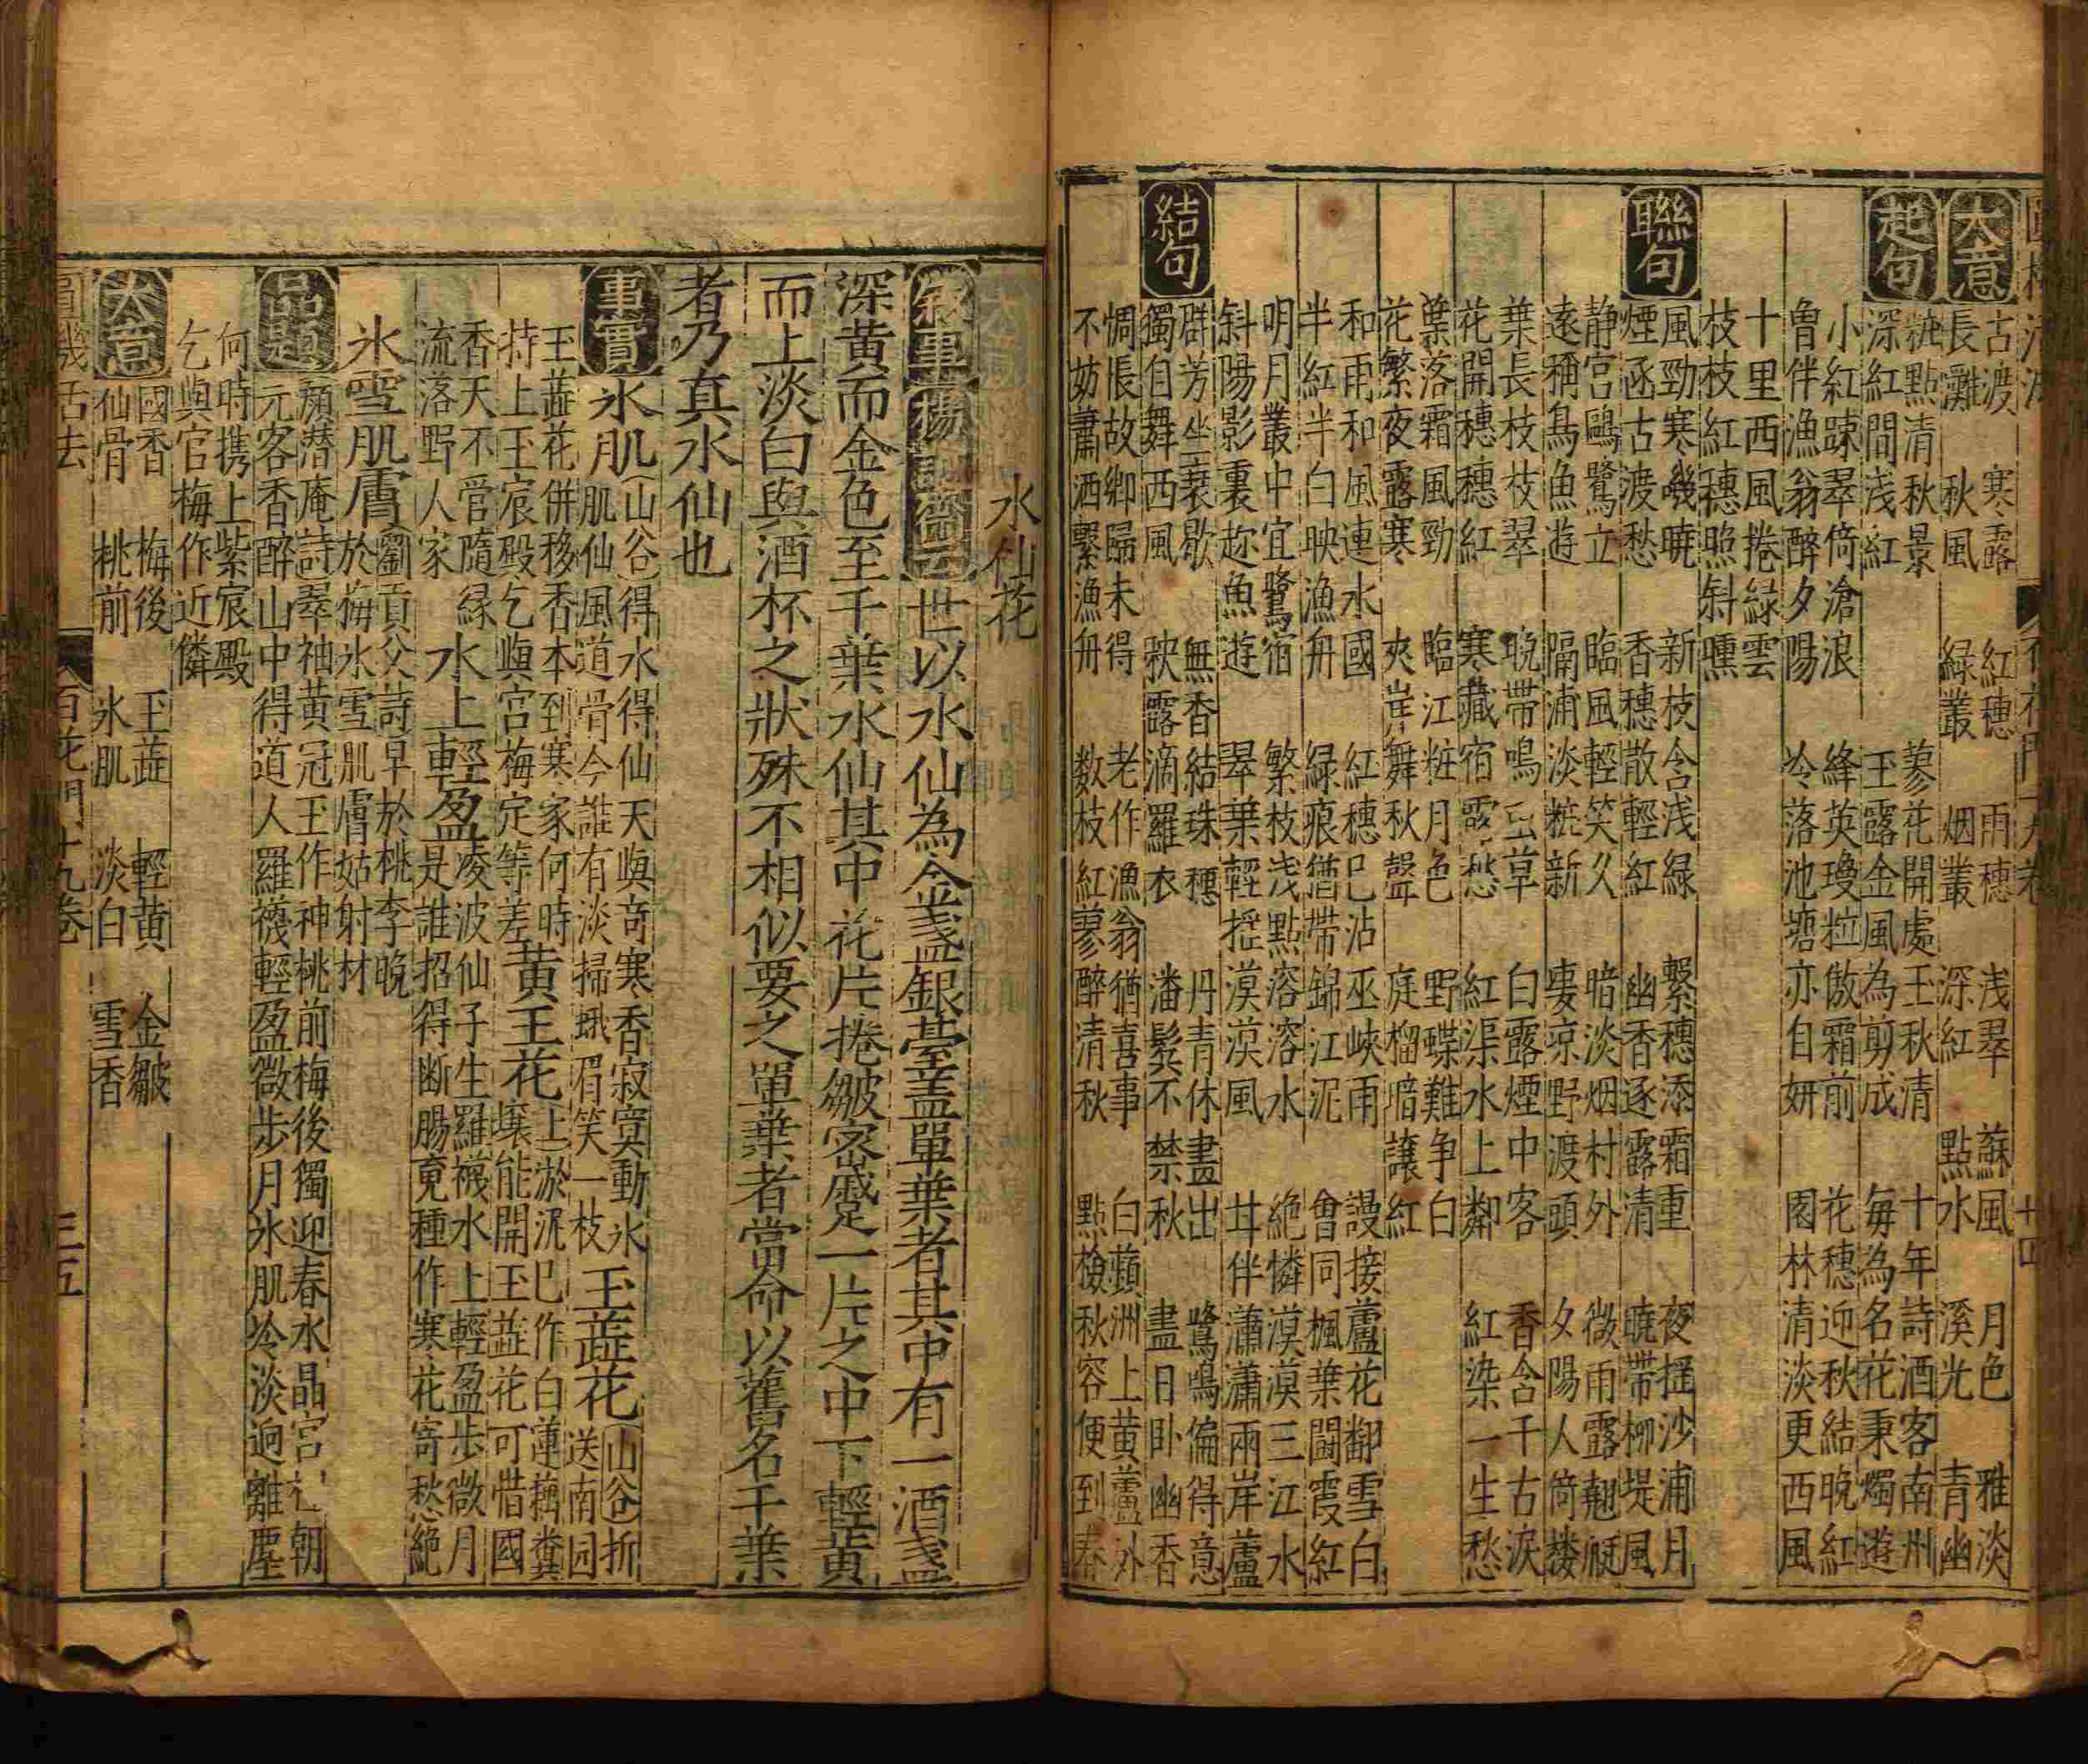 大意
古渡 寒露 紅穗 雨穗 浅翠 蘇風 月色 雅淡
長灘 秋風 緑叢 烟叢 深紅 點水 溪光 青幽
起句
粧點清秋景 蓼花開處玉秋清 十年詩酒客南州
深紅間浅紅 玉露金風為剪成 毎為名花秉燭遊
小紅踈翠倚滄浪 絳英瓊粒傲霜前 花穗迎秋結晩紅
魯伴漁翁醉夕陽 冷落池塘亦自妍 園林清淡更西風
十里西風捲緑雲
枝枝紅穗照斜曛
聯句
風勁寒畿曉 新枝含浅緑 繋穗添霜重 夜揺沙浦月
煙迷古渡愁 香穗散輕紅 幽香逐露清 曉帶栁堤風
静宮鷗鷺立 臨風輕笑久 暗淡烟村外 微雨露翹艇
遠稱鳥魚遊 隔浦淡粧新 凄凉野渡頭 夕陽人倚楼
葉長枝枝翠 晩帶鳴虫草 白露煙中客 香含千古淚
花開穗穗紅 寒藏宿鷺愁 紅渠水上鄰 紅染一生愁
葉落霜風勁 臨江粧月色 野蝶難争白
花繁夜露寒 夾岸舞秋聲 庭榴暗譲紅
和雨和風連水國 紅穗已沾巫峽雨 謾接蘆花翻雪白
半紅半白映漁舟 緑痕猶帶錦江泥 會同楓葉閙霞紅
明月叢中宜鷺宿 繁枝浅點溶溶水 絶憐漠漠三江水
斜陽影裏趂魚遊 翠葉輕揺漠漠風 廿伴瀟瀟兩岸蘆
結句
群芳坐衰歇 無香結珠穗 丹青休畫出 鷺鳴偏得意
獨自舞西風 秧露滴羅衣 潘鬂不禁秋 盡日卧幽香
惆悵故郷歸未得 老作漁翁猶喜事 白蘋洲上黄蘆外
不妨蕭洒繋漁舟 数枝紅蓼醉清秋 點檢秋容便到春
水仙花
叙事 楊誠齋云 世以水仙為金盞銀䑓盖單葉者其中有一酒盞
深黄而金色至千葉水仙其中花片捲皺密蹙一片之中下輕黄
而上淡白與酒杯之狀殊不相似要之單葉者當命以舊名千葉
者乃真水仙也
事實 氷肌 山谷 得水得仙天與竒寒香寂寞動氷
肌仙風道骨今誰有淡掃蛾眉笑一枝 玉蕋花 山谷 折
送南园
玉蕋花併移香本到寒家何時上淤泥已作白蓮藕糞
持上玉宸殿乞與宮梅定等差 黄玉花 壌能開玉蕋花可惜國
香天不管隨緑 水上輕盈 凌波仙子生羅襪水上輕盈歩微月
流落野人家 是誰招得断膓竟種作寒花寄愁絶
氷雪肌膚 劉貢父詩早於桃李晩
於梅氷雪肌膚姑射材
品題
顔潜庵詩翠袖黄冠玉作神桃前梅後獨迎春水晶宮 朝
元客香醉山中得道人羅襪輕盈微歩月氷肌冷淡逈離塵
何時携上紫宸殿
乞與官梅作近隣
大意
國香 梅後 玉蕋 輕黄 金皺
仙骨 桃前 氷肌 淡白 雪香
百花門十九卷 三五